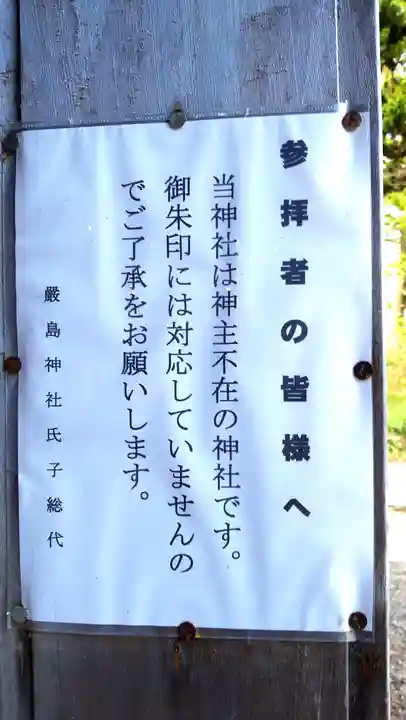 参拝者の皆様へ
当神社は神主不在の神社です。
御朱印には対応していませんの
でご了承をお願いします。
嚴島神社氏子総代